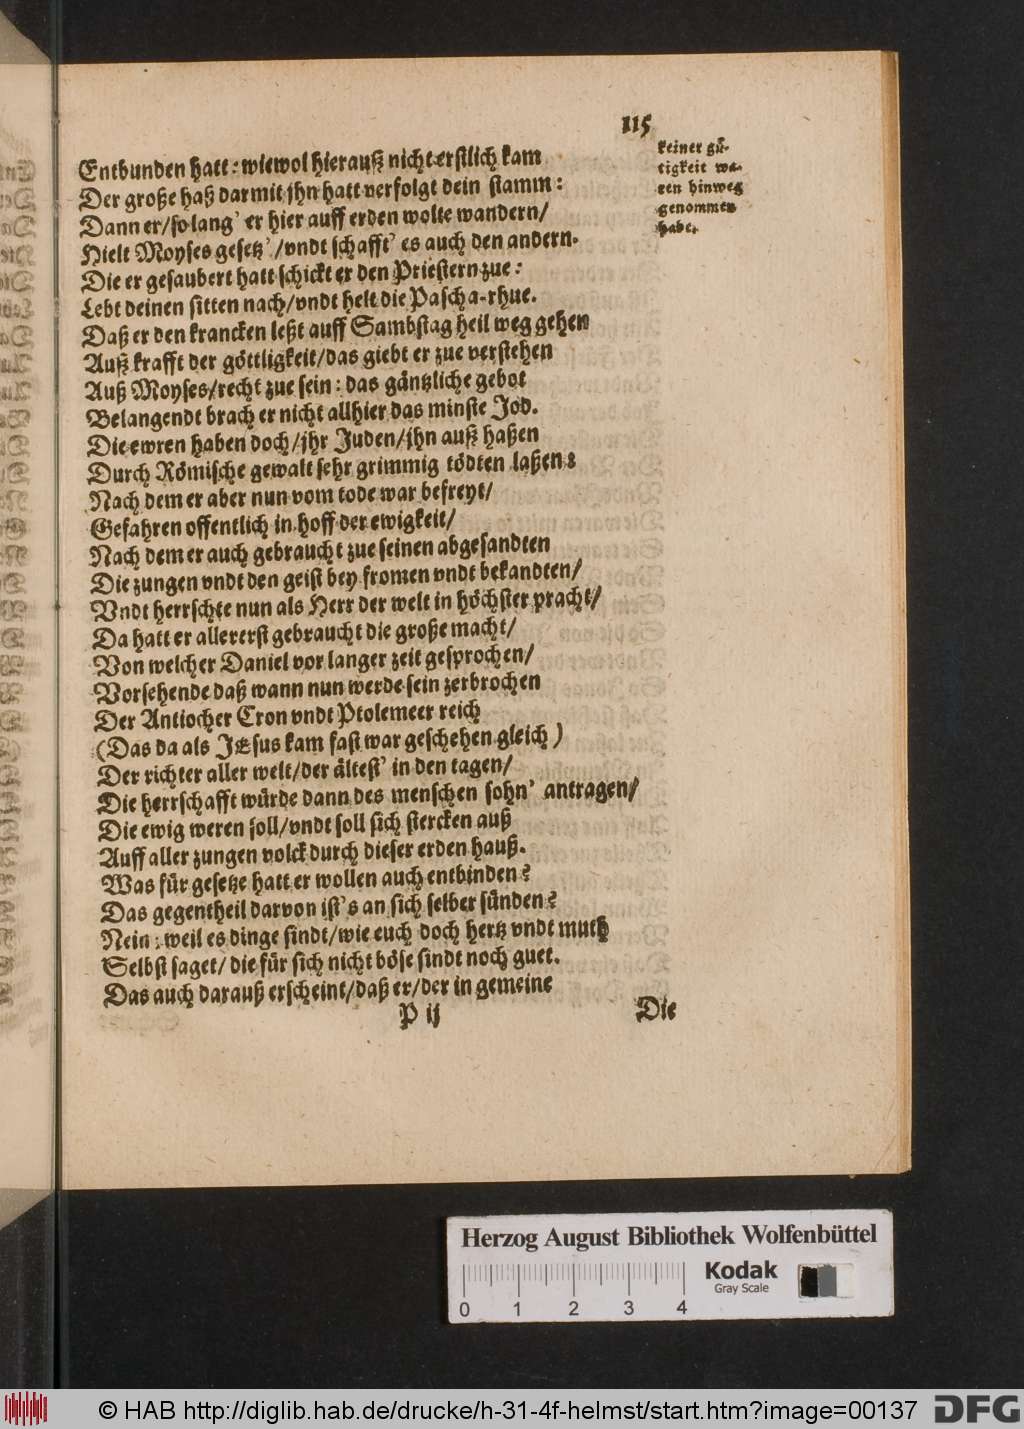 115
Entbunden hatt: wiewol hierauß nicht erstlich kam
Der große haß darmit jhn hatt verfolgt dein stamm:
Dann er/so lang' er hier auff erden wolte wandern/
Hielt Moyses gesetz'/vndt schafft' es auch den andern.
Die er gesaubert hatt schickt er den Priestern zue:
Lebt deinen sitten nach/vndt helt die Pascha-rhue.
Daß er den krancken leßt auff Sambstag heil weg gehen
Auß krafft der göttligkeit/das giebt er zue verstehen
Auß Moyses/recht zue sein: das gäntzliche gebot
Belangendt brach er nicht allhier das minste Jod.
Die ewren haben doch/jhr Juden/jhn auß haßen
Durch Römische gewalt sehr grimmig tödten laßen:
Nach dem er aber nun vom tode war befreyt/
Gefahren offentlich in hoff der ewigkeit/
Nach dem er auch gebraucht zue seinen abgesandten
Die zungen vndt den geist bey fromen vndt bekandten/
Vndt herrschte nun als Herr der welt in höchster pracht/
Da hatt er allererst gebraucht die große macht/
Von welcher Daniel vor langer zeit gesprochen/
Vorsehende daß wann nun werde sein zerbrochen
Der Antiocher Cron vndt Ptolemeer reich
(Das da als JEsus kam fast war geschehen gleich)
Der richter aller welt/der ältest' in den tagen/
Die herrschafft würde dann des menschen sohn' antragen/
Die ewig weren soll/vndt soll sich stercken auß
Auff aller zungen volck durch dieser erden hauß.
Was für gesetze hatt er wollen auch entbinden?
Das gegentheil darvon ist's an sich selber sünden?
Nein: weil es dinge sindt/wie euch doch hertz vndt muth
Selbst saget/ die für sich nicht böse sindt noch guet.
Das auch darauß erscheint/daß er/der in gemeine
P ij
Die
keiner gü-
tigkeit wa-
ren hinweg
genommen
habe.
Herzog August Bibliothek Wolfenbüttel
Kodak
Gray Scale
0 1 2 3 4
© HAB http://diglib.hab.de/drucke/h-31-4f-helmst/start.htm?image=00137
DFG